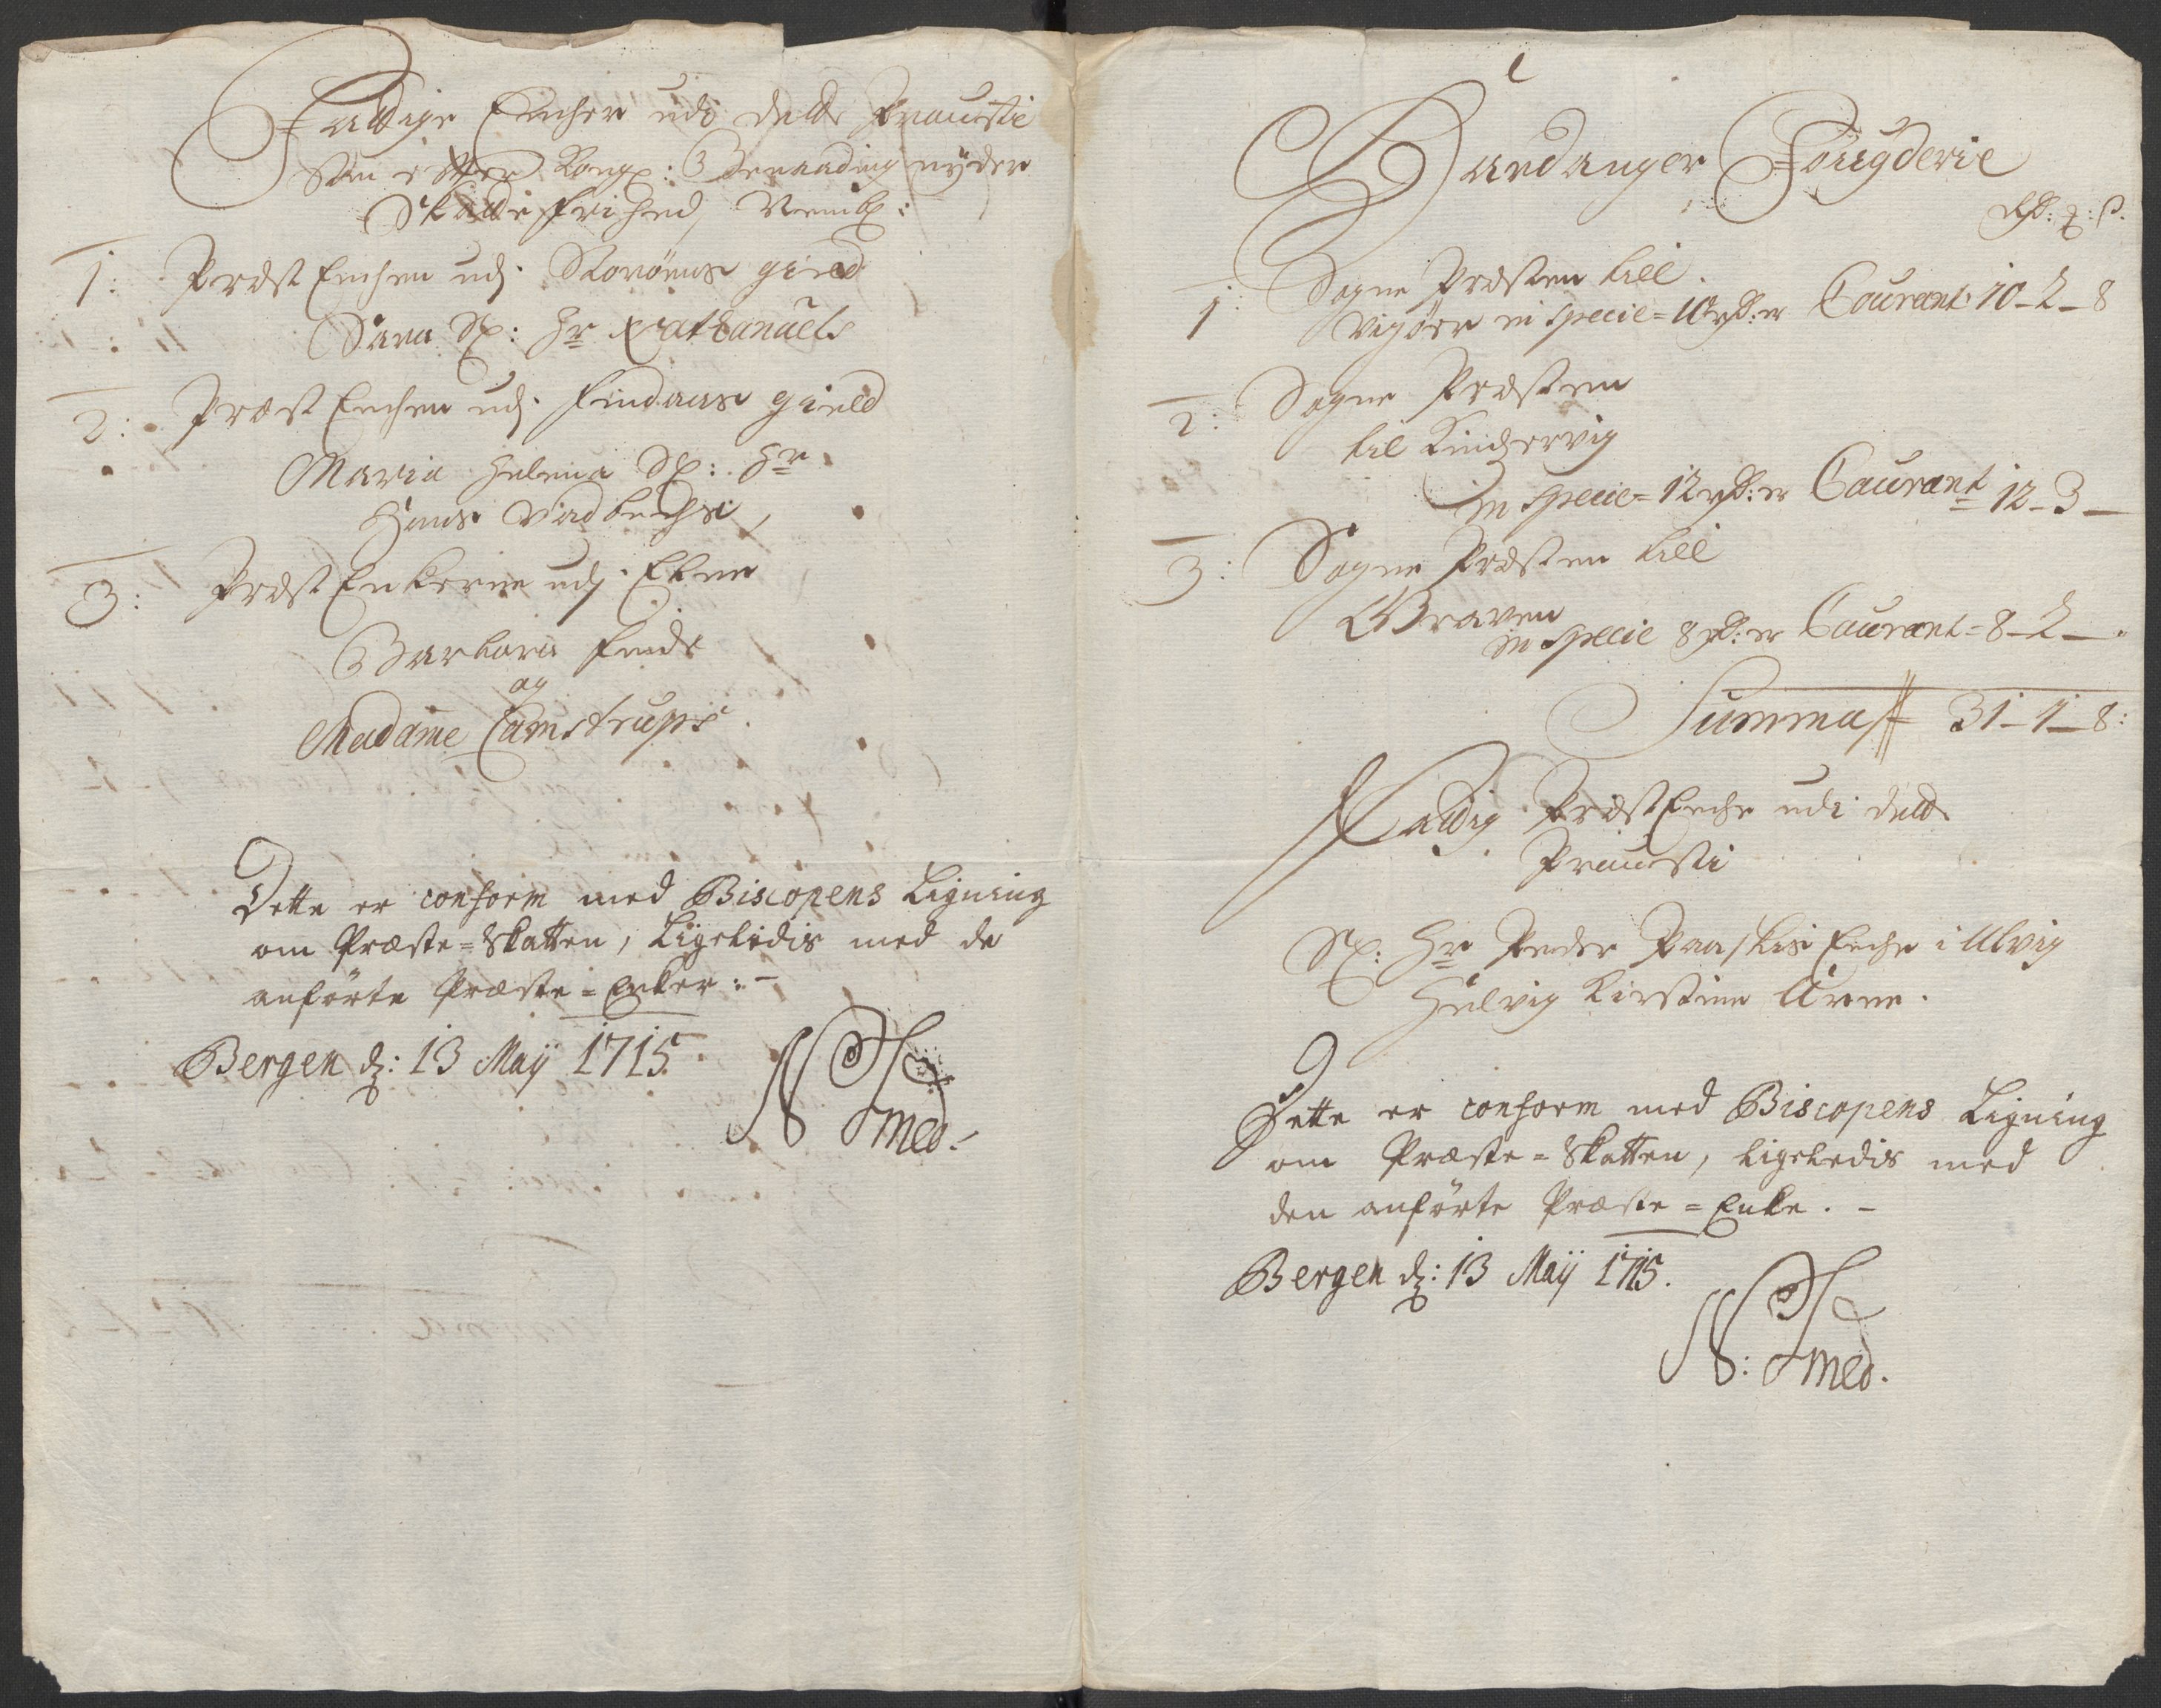 Fattige Encher udi dette Prousti
Som efter Kongl: Benaading nyder
Skatte frihed, Nembl:
1: Præst Enchen udj Storöens gield
Sara Sl: Hr Nathanaels
2: Præst Enchen udj Findaas gield
Maria Helena Sl: Hr
Hans Vadbechs,
3: Præst Enkerne udj Ekne
Barbara Finds
og
Madame Camstrups
Dette er conform med Biscopens Ligning
om Præste=Skatten, Ligeledis med de
anförte Præste=Enker:-
Bergen d: 13 Maij 1715.
N Smed.
Hardanger Fougderie
Rd: z: s.
1: Sogne Præsten till
Vigöer in specie=10 rd: er Courant 10-2-8
2: Sogne Præsten
til Kindservig
in specie=12 rd: er Courant 12-3-
3: Sogne Præsten till
Graven
in specie 8 rd: er Courant=8-2-
Summa 31-1-8:
Fattig Præst Enche udi dette
Prousti
Sl: Hr Peder Paaskes Enche i Ulvig
Helvig Kirstine Arne.
Dette er conform med Biscopens Ligning
om Præste=Skatten, ligeledis med
den anförte Præste=Enke.-
Bergen d: 13 Maij 1715.
N: Smed.